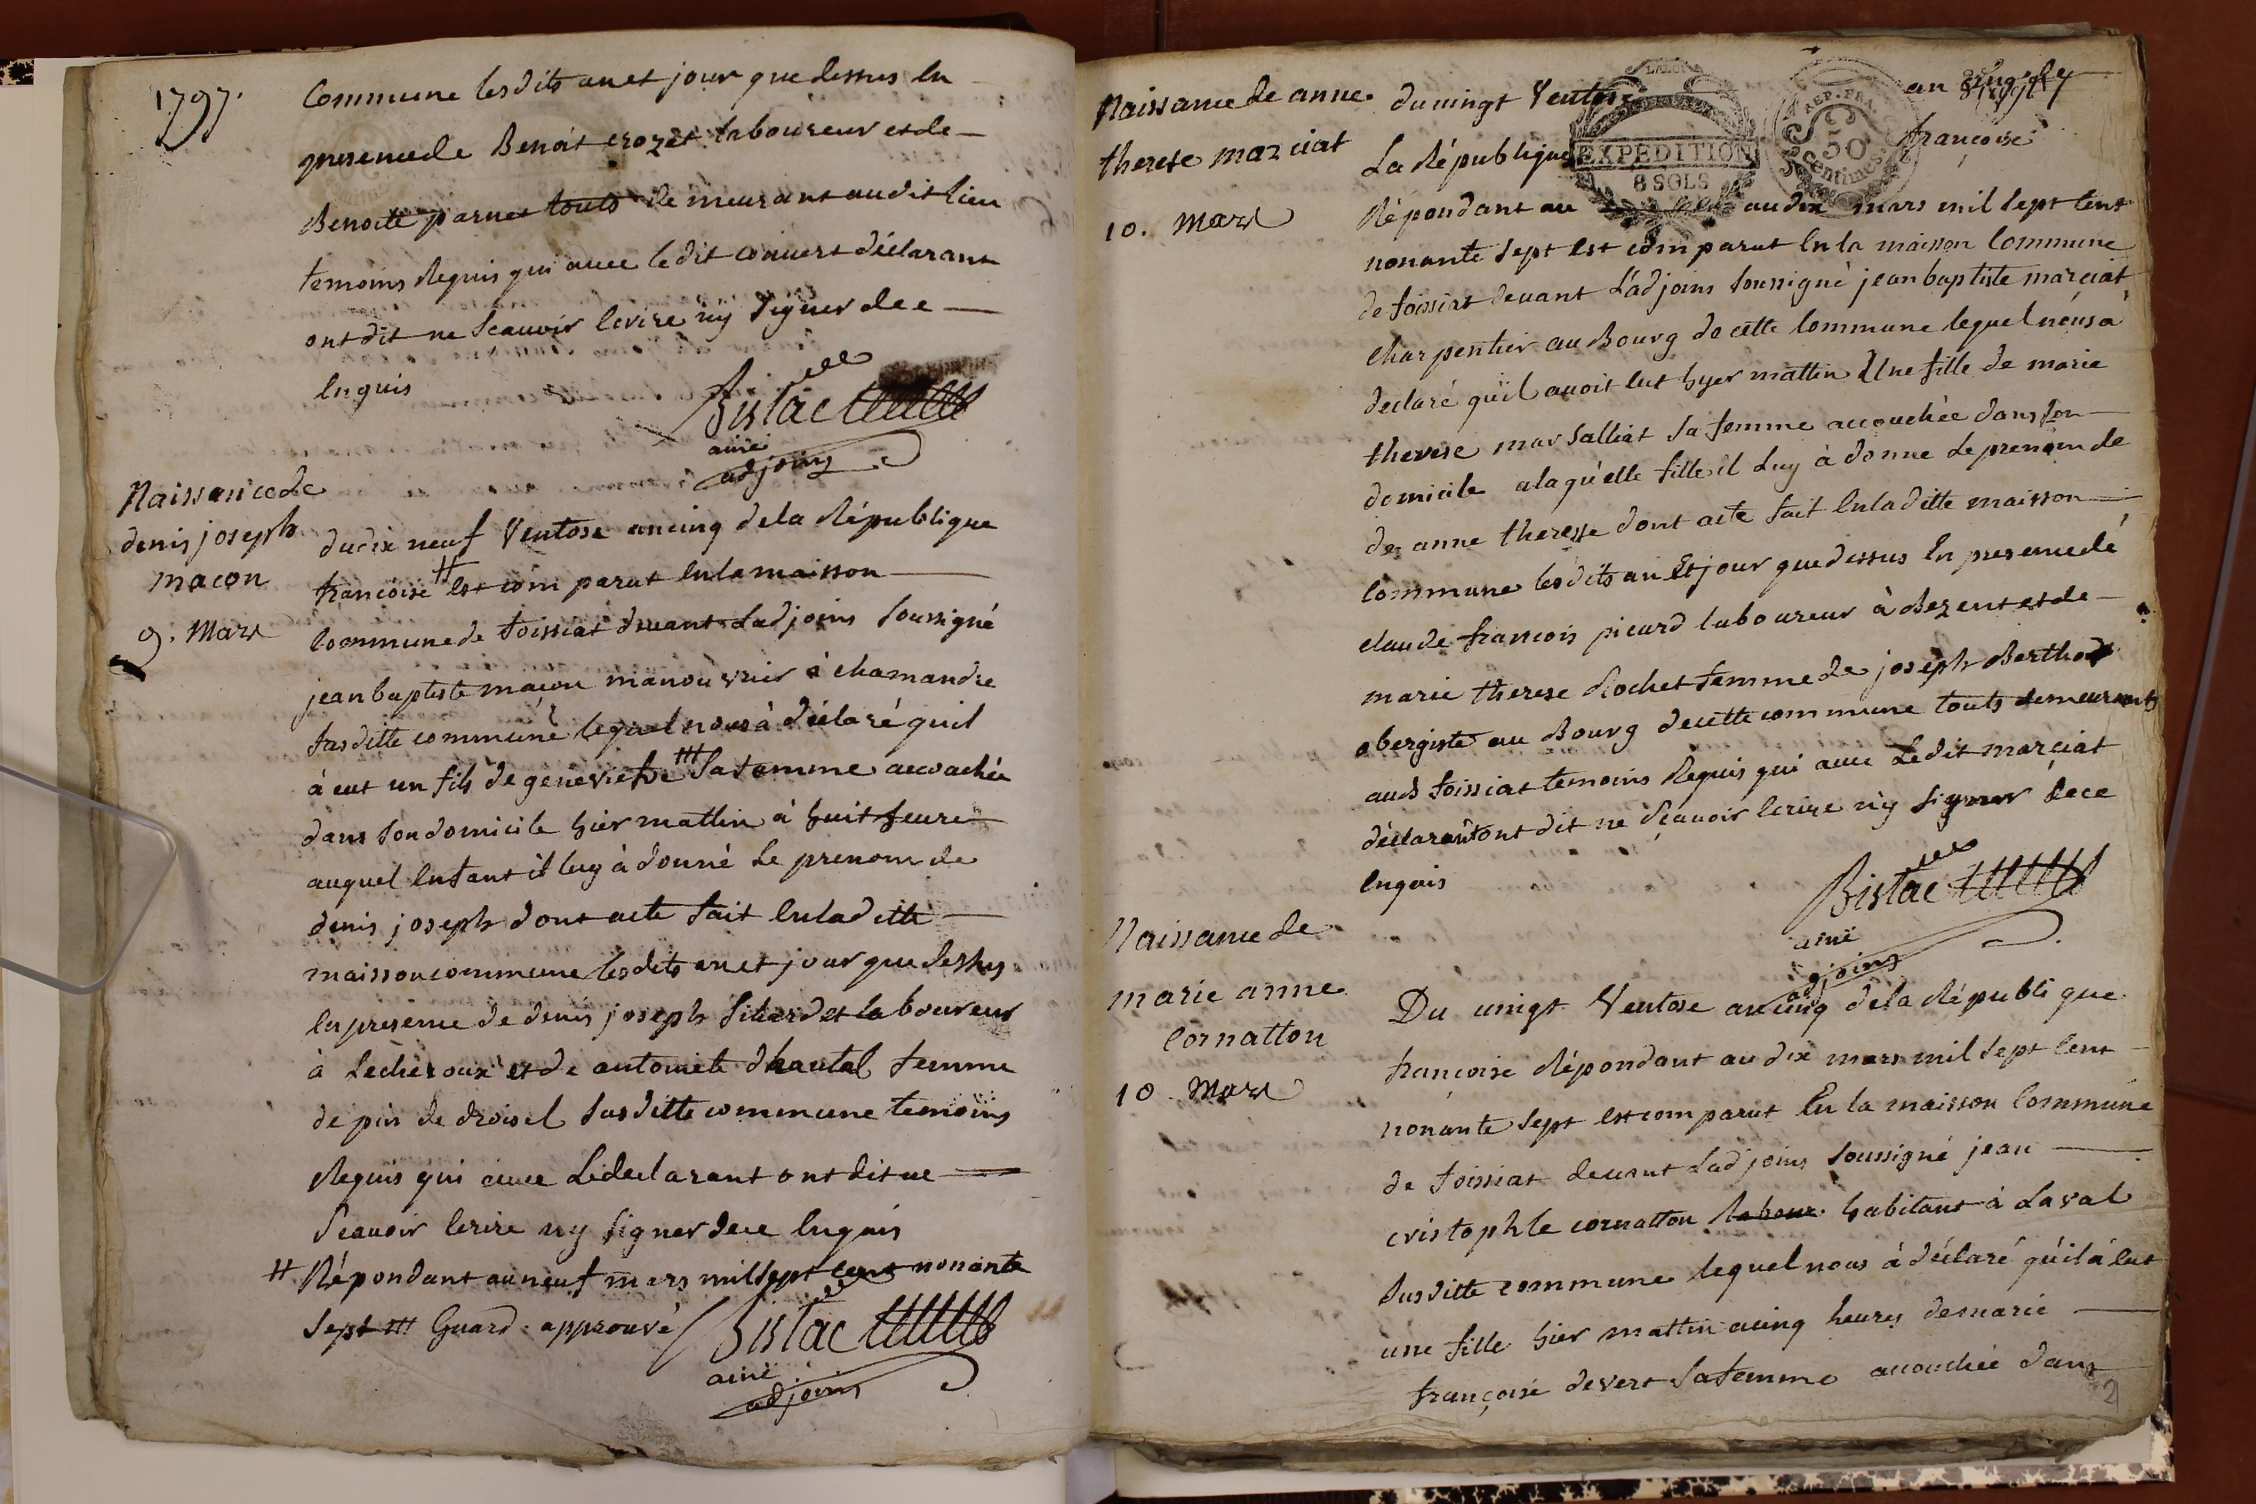 1797.
Commune lesdits an et jour que dessus En
presence de Benoit crozet laboureur et de
Benoite parnet touts demeurant audit lieu
temoins Requis qui avec ledit convert déclarant
ont dit ne Scavoir Ecrire ny Signer de ce
Enquis
Bistac
ainé
adjoins
Naissance de
denis joseph
macon
9. Mars
du dix neuf Ventose an cinq de la République
francoise # Est comparut En la maisson
Commune de foissiat devant Ladjoins Soussigné
jean baptiste maçon manouvrier à chamandre
Susditte commune lequel nous à déclaré quil
à eut un fils de genevieve ### Sa femme accouchée
dans Son domicile hier mattin à huit heure
auquel Enfant il luy à donné Le prenom de
denis joseph dont acte fait En la ditte
maisson commune lesdits an et jour que dessus
En presence de denis joseph laboureur
à Lecheroux et de antoinete femme
de pin de droisel Susditte commune temoins
Requis qui avec Le declarant ont dit ne
Scavoir Ecrire ny Signer de ce Enquis
# Répondant au neuf mars mil Sept Cent nonante
Sept ### Guard. approuvé
Bistac
ainé
adjoins
Naissance de anne
therese marciat
10. Mars
du vingt Ventose an
La République françoise
EXPEDITION
8 SOLS
REP. FRA.
50
Centimes
Répondant au au dix mars mil Sept Cent
nonante Sept Est comparut En la maisson Commune
de foissiat devant L'adjoins Soussigné jean baptiste marciat
charpentier au Bourg de cette Commune lequel nous à
declaré qu'il avoit Eut hyer mattin Une fille de marie
therese marsalliat Sa femme accouchée dans Son
domicile a laquelle fille il Luy à donne Le prenom de
de anne theresse dont acte fait En la ditte maisson
Commune lesdits an Et jour que dessus En presence de
claude francois picard laboureur à Bezent et de
marie therese Rochet femme de joseph Berthod
obergiste au Bourg de cette commune touts demeurants
aud foissiat temoins Requis qui avec Ledit marciat
déclarant ont dit ne Sçavoir Ecrire ny Signer de ce
Enquis
Bistac
ainé
adjoins
Naissance de
marie anne
Cornatton
10. Mars
Du vingt Ventose an cinq de la République
françoise Répondant au dix mars mil Sept Cent
nonante Sept Est comparut En la maisson Commune
de foissiat devant Ladjoins Soussigné jean
cristophle cornatton labour. habitant à Laval
Susditte commune lequel nous à déclaré qu'il à Eut
une fille hier mattin a cinq heures de marie
françoise devert Sa femme accouchée dans
2